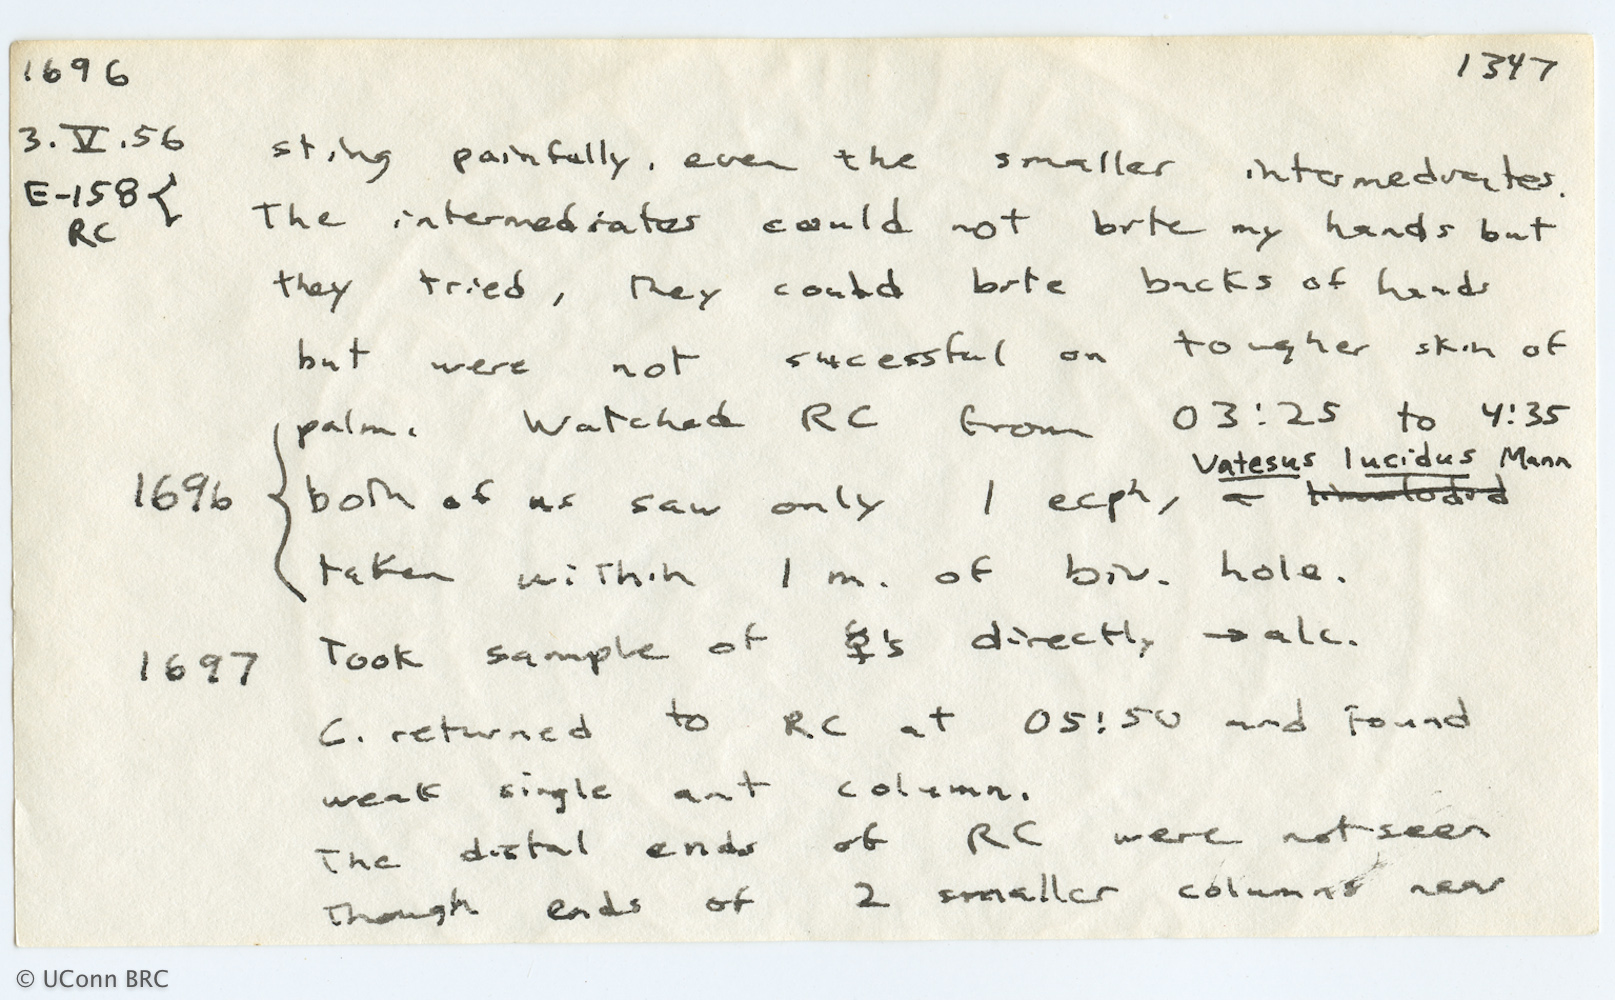 1696 1347
3.V.56 sting painfully, even the smaller intermediates.
E-158{ The intermediates could not bite my hands but
RC
they tried, They could bite backs of hands
but were not sucessful on tougher skin of
palm. Watched RC from 03:25 to 4:35
Vatesus lucidus Mann
1696 { both of us saw only 1 ecph, a
taken within 1 m. of biv. hole.
1697 Took sample of ☿'s directly → alc.
C. returned to RC at 05:50 and found
weak single ant column.
The distal ends of RC were not seen
Though ends of 2 smaller columns near
© UConn BRC